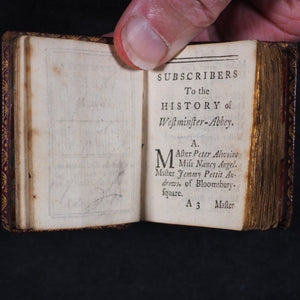 SUBSCRIBERS
To the
HISTORY of
Westminster-Abbey.
A.
MAster Peter Alwoine
Miss Nancy Angel.
Master Jemmy Pettit An-
drews, of Bloomsbury-
square.
A 3 Master